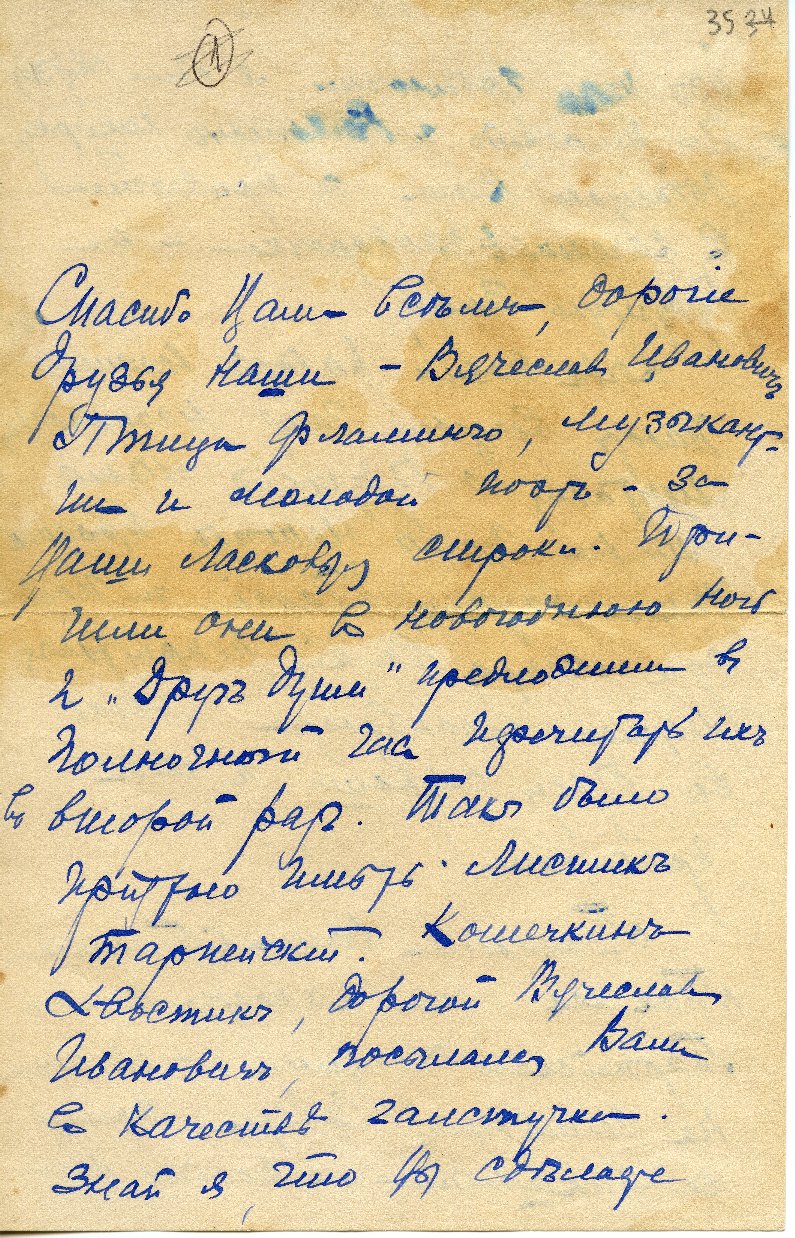 35 34
1
Спасибо Вамъ всѣмъ, дорогіе
друзья наши – Вячеславъ Ивановичъ
Птица Фламинго, музыкант-
ши и молодой поэтъ – за
Ваши ласковыя строки. При-
шли они въ новогоднюю ночь
и „Другъ Души" предложилъ въ
полночный час прочитать ихъ
во второй разъ. Такъ было
пріятно имѣть листикъ
Тарпейскій. Кошечкинъ
хвостикъ, дорогой Вячеславъ
Ивановичъ, посылаю Вамъ
въ качествѣ галстучка.
Знай я, что Вы сдѣлаете